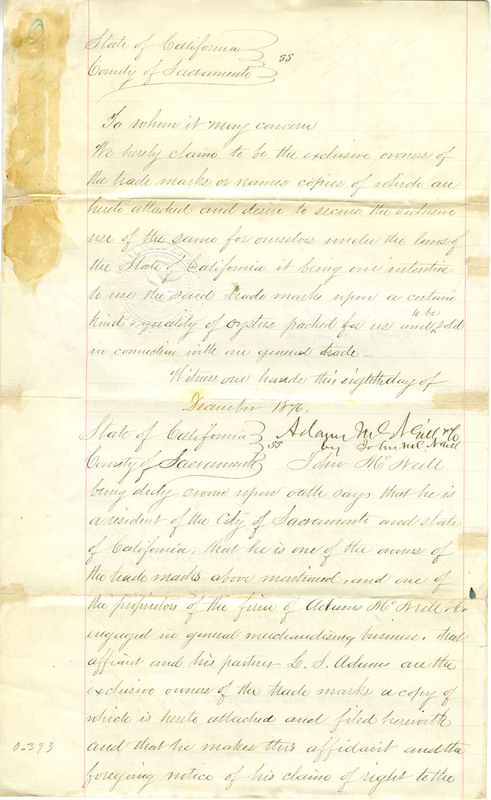 State of California
County of Sacramento } ss
To whom it may concern
We hereby claim to be the exclusive owners of
the trade marks or names copies of which are
hereto attached and desire to secure the exclusive
use of the same for ourselves under the laws of
the State of California it being our intention
to use the said trade marks upon a certain
kind & quality of oysters packed for us and to be sold
in connection with our general trade—
Witness our hands this eighth day of
December 1876.
Adams McNeill & Co
by John McNeill
State of California
County of Sacramento } ss John McNeill
being duly sworn upon oath says that he is
a resident of the City of Sacramento and state
of California, that he is one of the owners of
the trade marks above mentioned, and one of
the proprietors of the firm of Adams McNeill & Co
engaged in general merchandising business. that
affiant and his partner L. S. Adams are the
exclusive owners of the trade marks a copy of
which is hereto attached and filed herewith
and that he makes this affidavit and the
foregoing notice of his claim of right to the
0-393